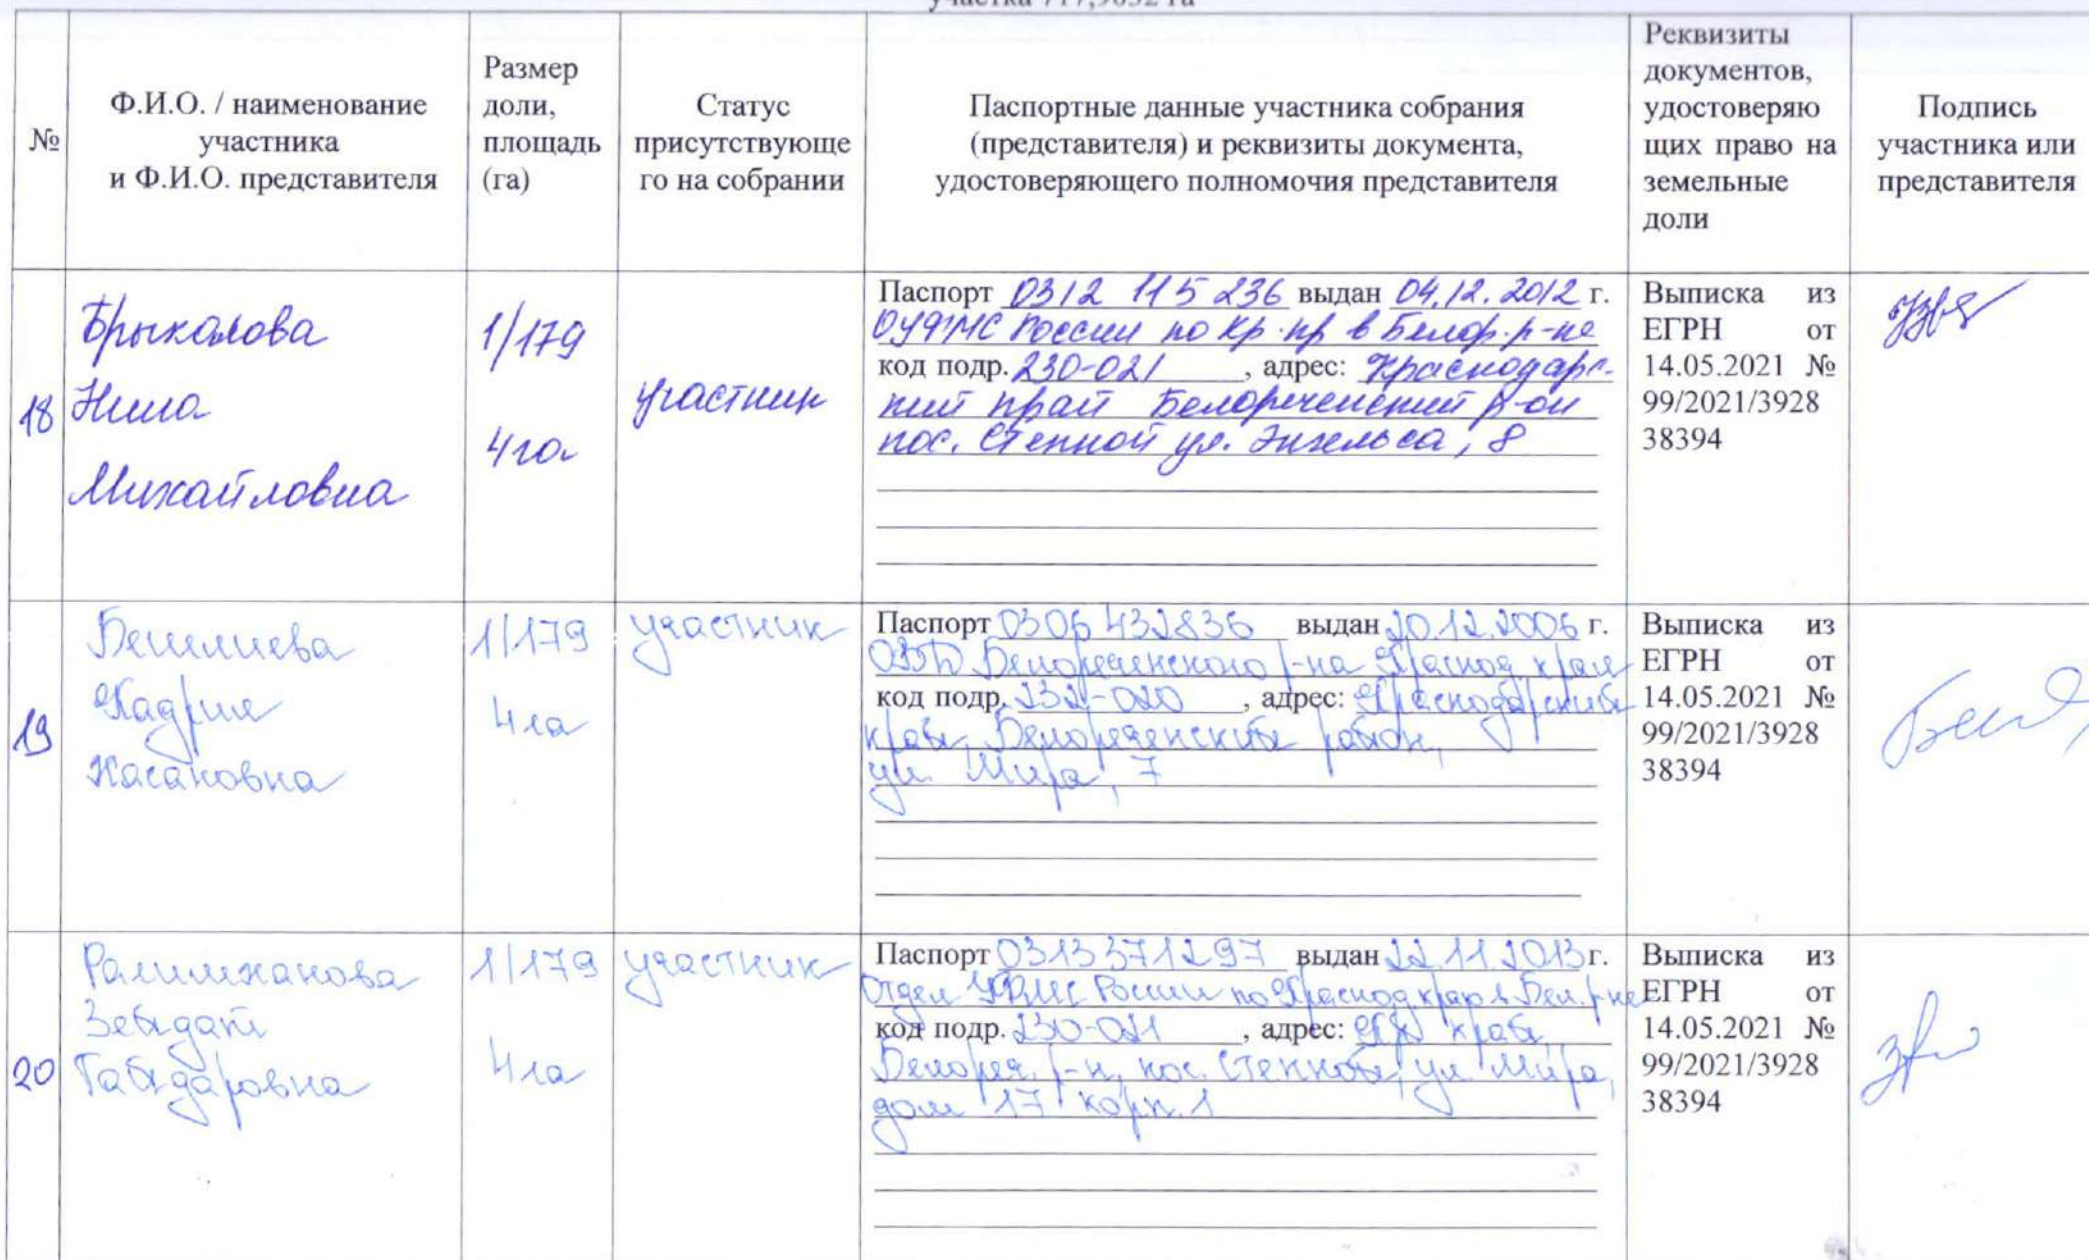 №
Ф.И.О. / наименование
участника
и Ф.И.О. представителя
Размер
доли,
площадь
(га)
Статус
присутствующе
го на собрании
Паспортные данные участника собрания
(представителя) и реквизиты документа,
удостоверяющего полномочия представителя
Реквизиты
документов,
удостоверяю
щих право на
земельные
доли
Подпись
участника или
представителя
18
Брыкалова
Нина
Михайловна
1/179
4 га
участник
Паспорт 0312 115 236 выдан 04.12.2012 г.
ОУФМС России по Кр. кр в Белор. р-не
код подр. 230-021, адрес: Краснодарс-
кий край Белореченский р-он
пос. Степной ул. Энгельса, 8
Выписка из
ЕГРН от
14.05.2021 №
99/2021/3928
38394
19
Бешлиева
Кадрия
Хасановна
1/179
4 га
участник
Паспорт 0306 432836 выдан 20.12.2006 г.
ОВД Белореченского р-на Краснод. края
код подр. 232-020, адрес: Краснодарский
край, Белореченский район,
ул. Мира, 7
Выписка из
ЕГРН от
14.05.2021 №
99/2021/3928
38394
20
Зебидат
1/179
4 га
участник
Паспорт 0313 371297 выдан 22.11.2013 г.
Отдел УФМС России по Краснод. краю в Бел. р-не
код подр. 230-021, адрес: край
Белореч. р-н, пос. Степной, ул. Мира,
дом 17 корп. 1
Выписка из
ЕГРН от
14.05.2021 №
99/2021/3928
38394